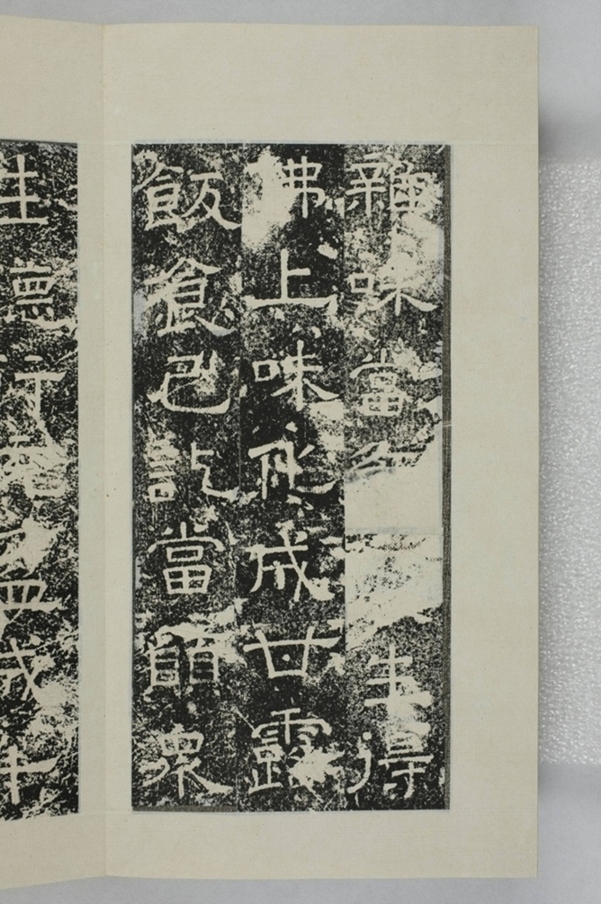 雜味當
生得
佛上味化成甘露
飯食已訖當願衆
生德行
戒